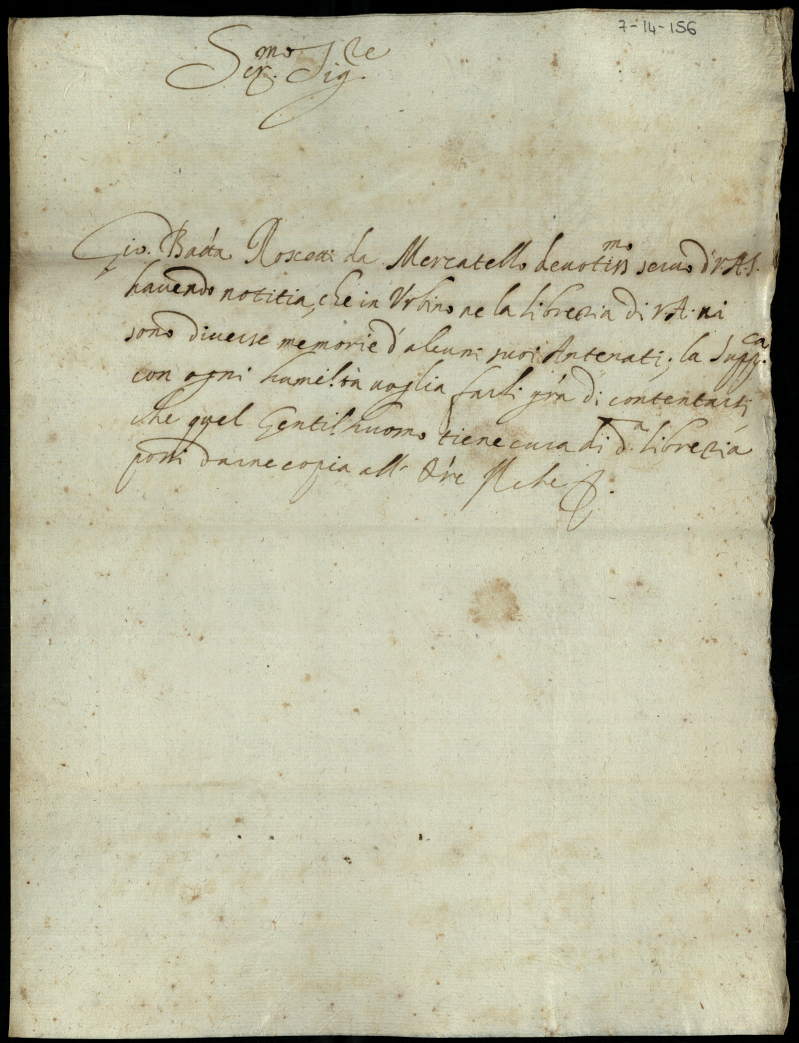 7-14-156
Ser.mo Sig.re
Gio. Batta Roscetti da Mercatello devotiss.mo servo d V.A.S.
havendo notitia, che in Urbino ne la libreria di V.A. ui
sono diverse memorie d'alcuni suoi Antenati; la supp.ca
con ogni humiltà voglia farli gr̃a di contentarsi
che quel Gentilhuomo tiene cura di d.a libreria
possi darne copia all' Ore